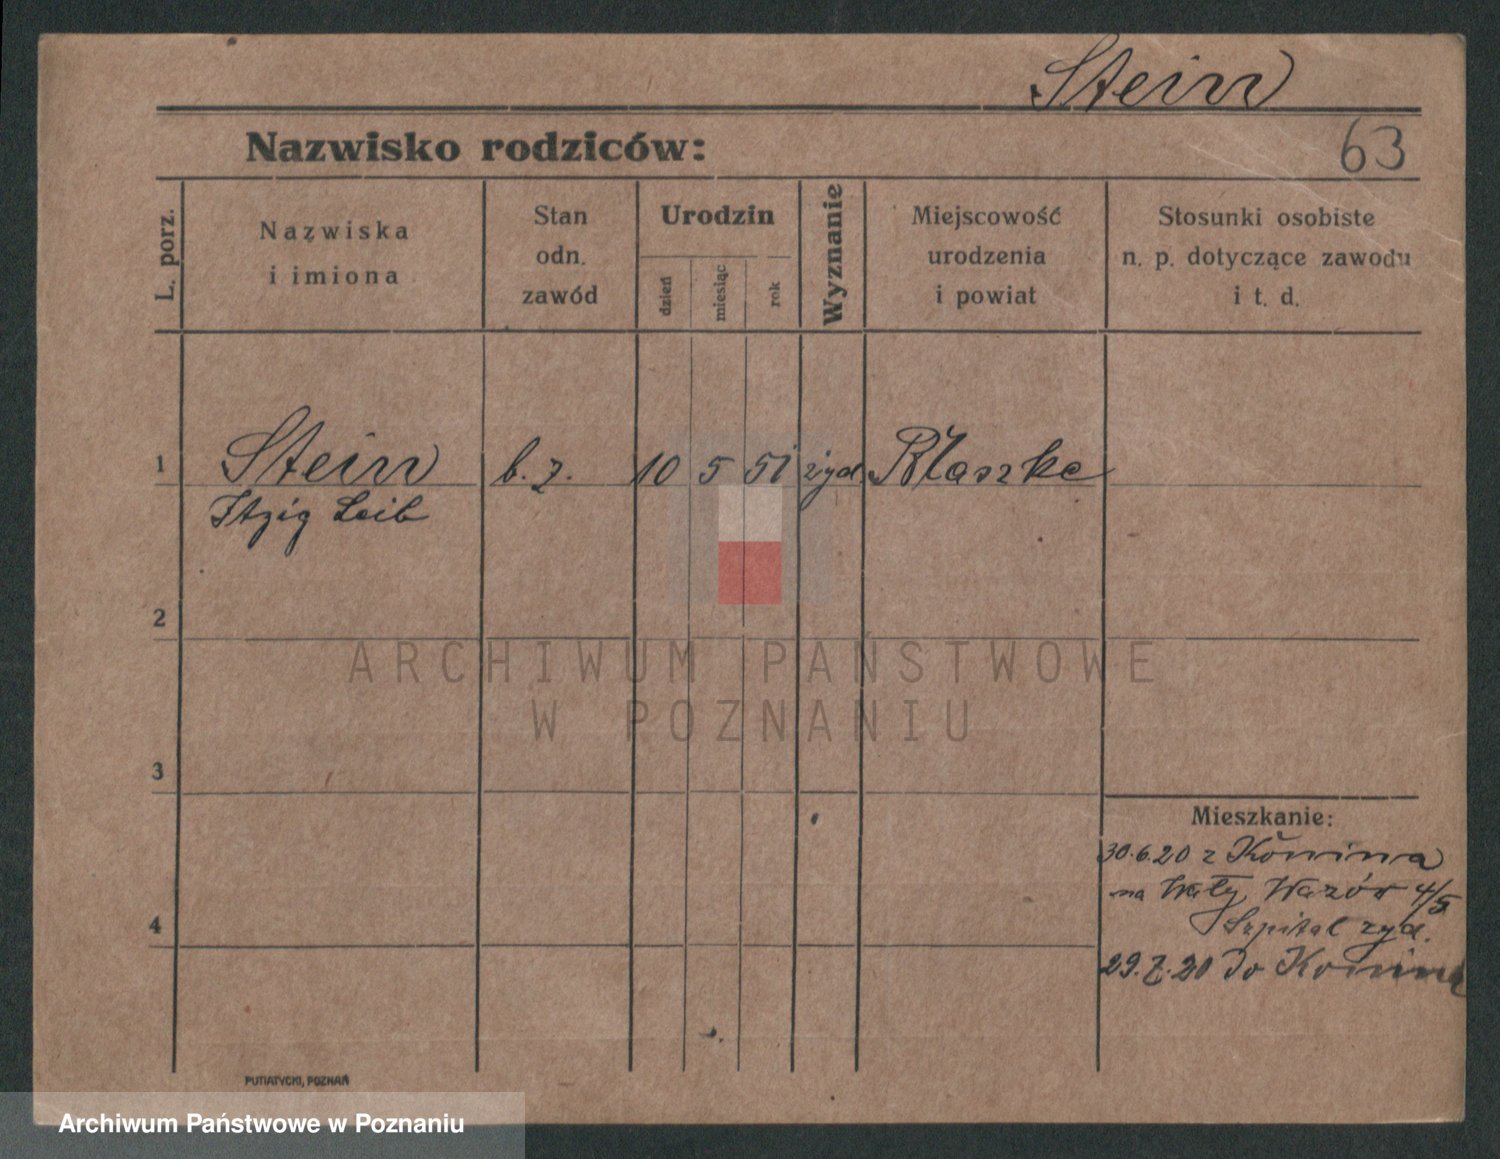 Stein
Nazwisko rodziców:
63
L. porz.
Nazwiska
i imiona
Stan
odn.
zawód
Urodzin
dzień
miesiąc
rok
Wyznanie
Miejscowość
urodzenia
i powiat
Stosunki osobiste
n. p. dotyczące zawodu
i t. d.
1
Stein
b. z.
10
5
51
żyd
Błaszke
Itzig Leib
2
ARCHIWUM PAŃSTWOWE
W POZNANIU
3
Mieszkanie:
30.6.20 z Konina
na Wały Wazów 4/5
Szpital żyd.
4
29.7.20 do Konina
PUTIATYCKI, POZNAŃ
Archiwum Państwowe w Poznaniu